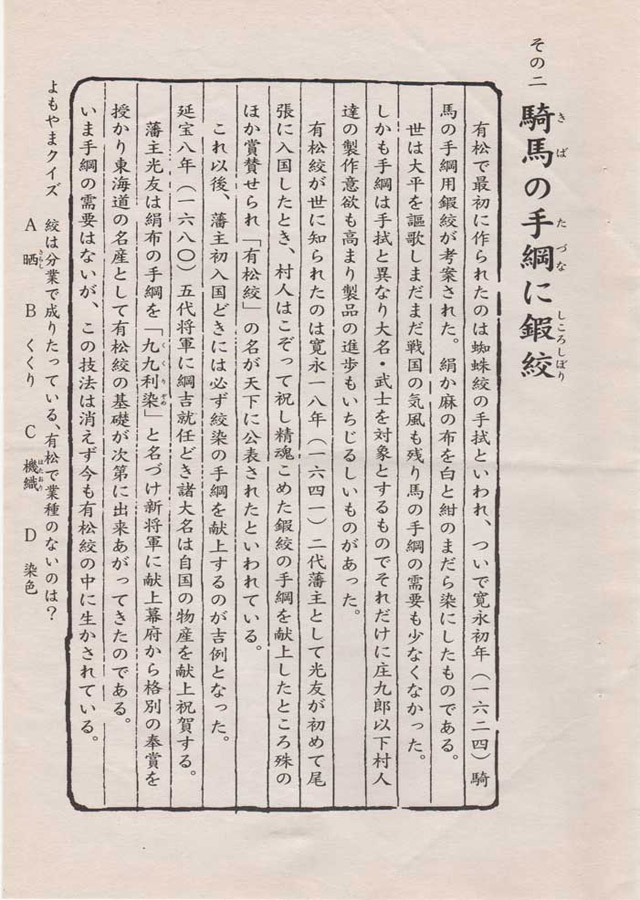 その二
騎馬の手綱に錏絞
きば
たづな
しころしぼり
有松で最初に作られたのは蜘蛛絞の手拭といわれ、ついで寛永初年（一六二四）騎
馬の手綱用錏絞が考案された。絹か麻の布を白と紺のまだら染にしたものである。
世は大平を謳歌しまだまだ戦国の気風も残り馬の手綱の需要も少なくなかった。
しかも手綱は手拭と異なり大名・武士を対象とするものでそれだけに庄九郎以下村人
達の製作意欲も高まり製品の進歩もいちじるしいものがあった。
有松絞が世に知られたのは寛永一八年（一六四一）二代藩主として光友が初めて尾
張に入国したとき、村人はこぞって祝し精魂こめた錏絞の手綱を献上したところ殊の
ほか賞賛せられ「有松絞」の名が天下に公表されたといわれている。
これ以後、藩主初入国どきには必ず絞染の手綱を献上するのが吉例となった。
延宝八年（一六八〇）五代将軍に綱吉就任どき諸大名は自国の物産を献上祝賀する。
藩主光友は絹布の手綱を「九九利染」と名づけ新将軍に献上幕府から格別の奉賞を
くくりぞめ
授かり東海道の名産として有松絞の基礎が次第に出来あがってきたのである。
いま手綱の需要はないが、この技法は消えず今も有松絞の中に生かされている。
よもやまクイズ　絞は分業で成りたっている、有松で業種のないのは？
A 晒　B くくり　C 機織　D 染色
さらし
はたおり